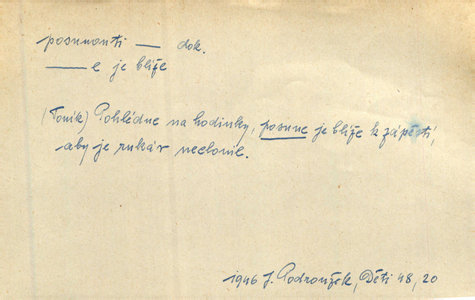 posunouti — dok.
—— e je blíže
(Toník) Pohlédne na hodinky, posune je blíže k zápěstí,
aby je rukáv neclonil.
1946 J. Podroužek, Děti 48, 20